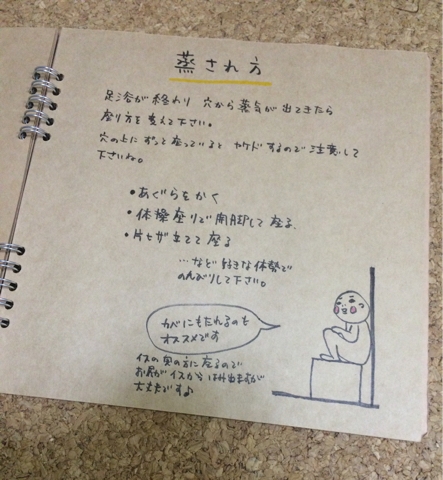 蒸され方
足浴が終わり 穴から蒸気が出てきたら
座り方を変えて下さい。
穴の上にずっと座っていると ヤケドするので注意して
下さいね。
・あぐらをかく
・体操座りで開脚して座る.
・片ヒザ立てて座る
…など好きな体勢で
のんびりして下さい。
カベにもたれるのも
オススメです
イスの奥の方に座るので
お尻がイスからはみ出ますが
大丈夫です♪